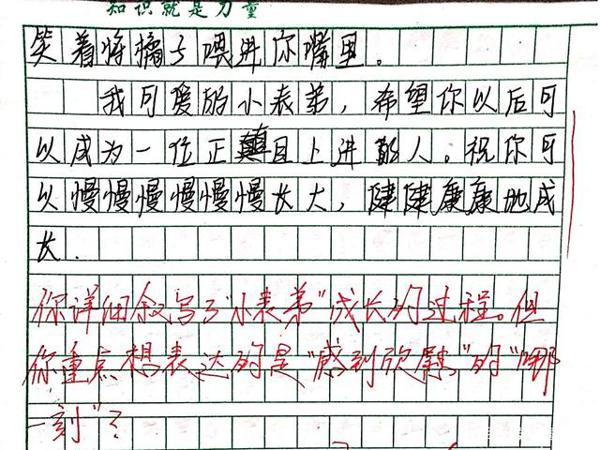 知识就是力量
笑着将橘子喂进你嘴里。
我可爱的小表弟，希望你以后可
以成为一位正直且上进的人。祝你可
以慢慢慢慢慢慢长大，健健康康地成
长.
你详细叙写了“小表弟”成长的过程。但
你重点想表达的是“感到欣慰”的“哪
一刻”？